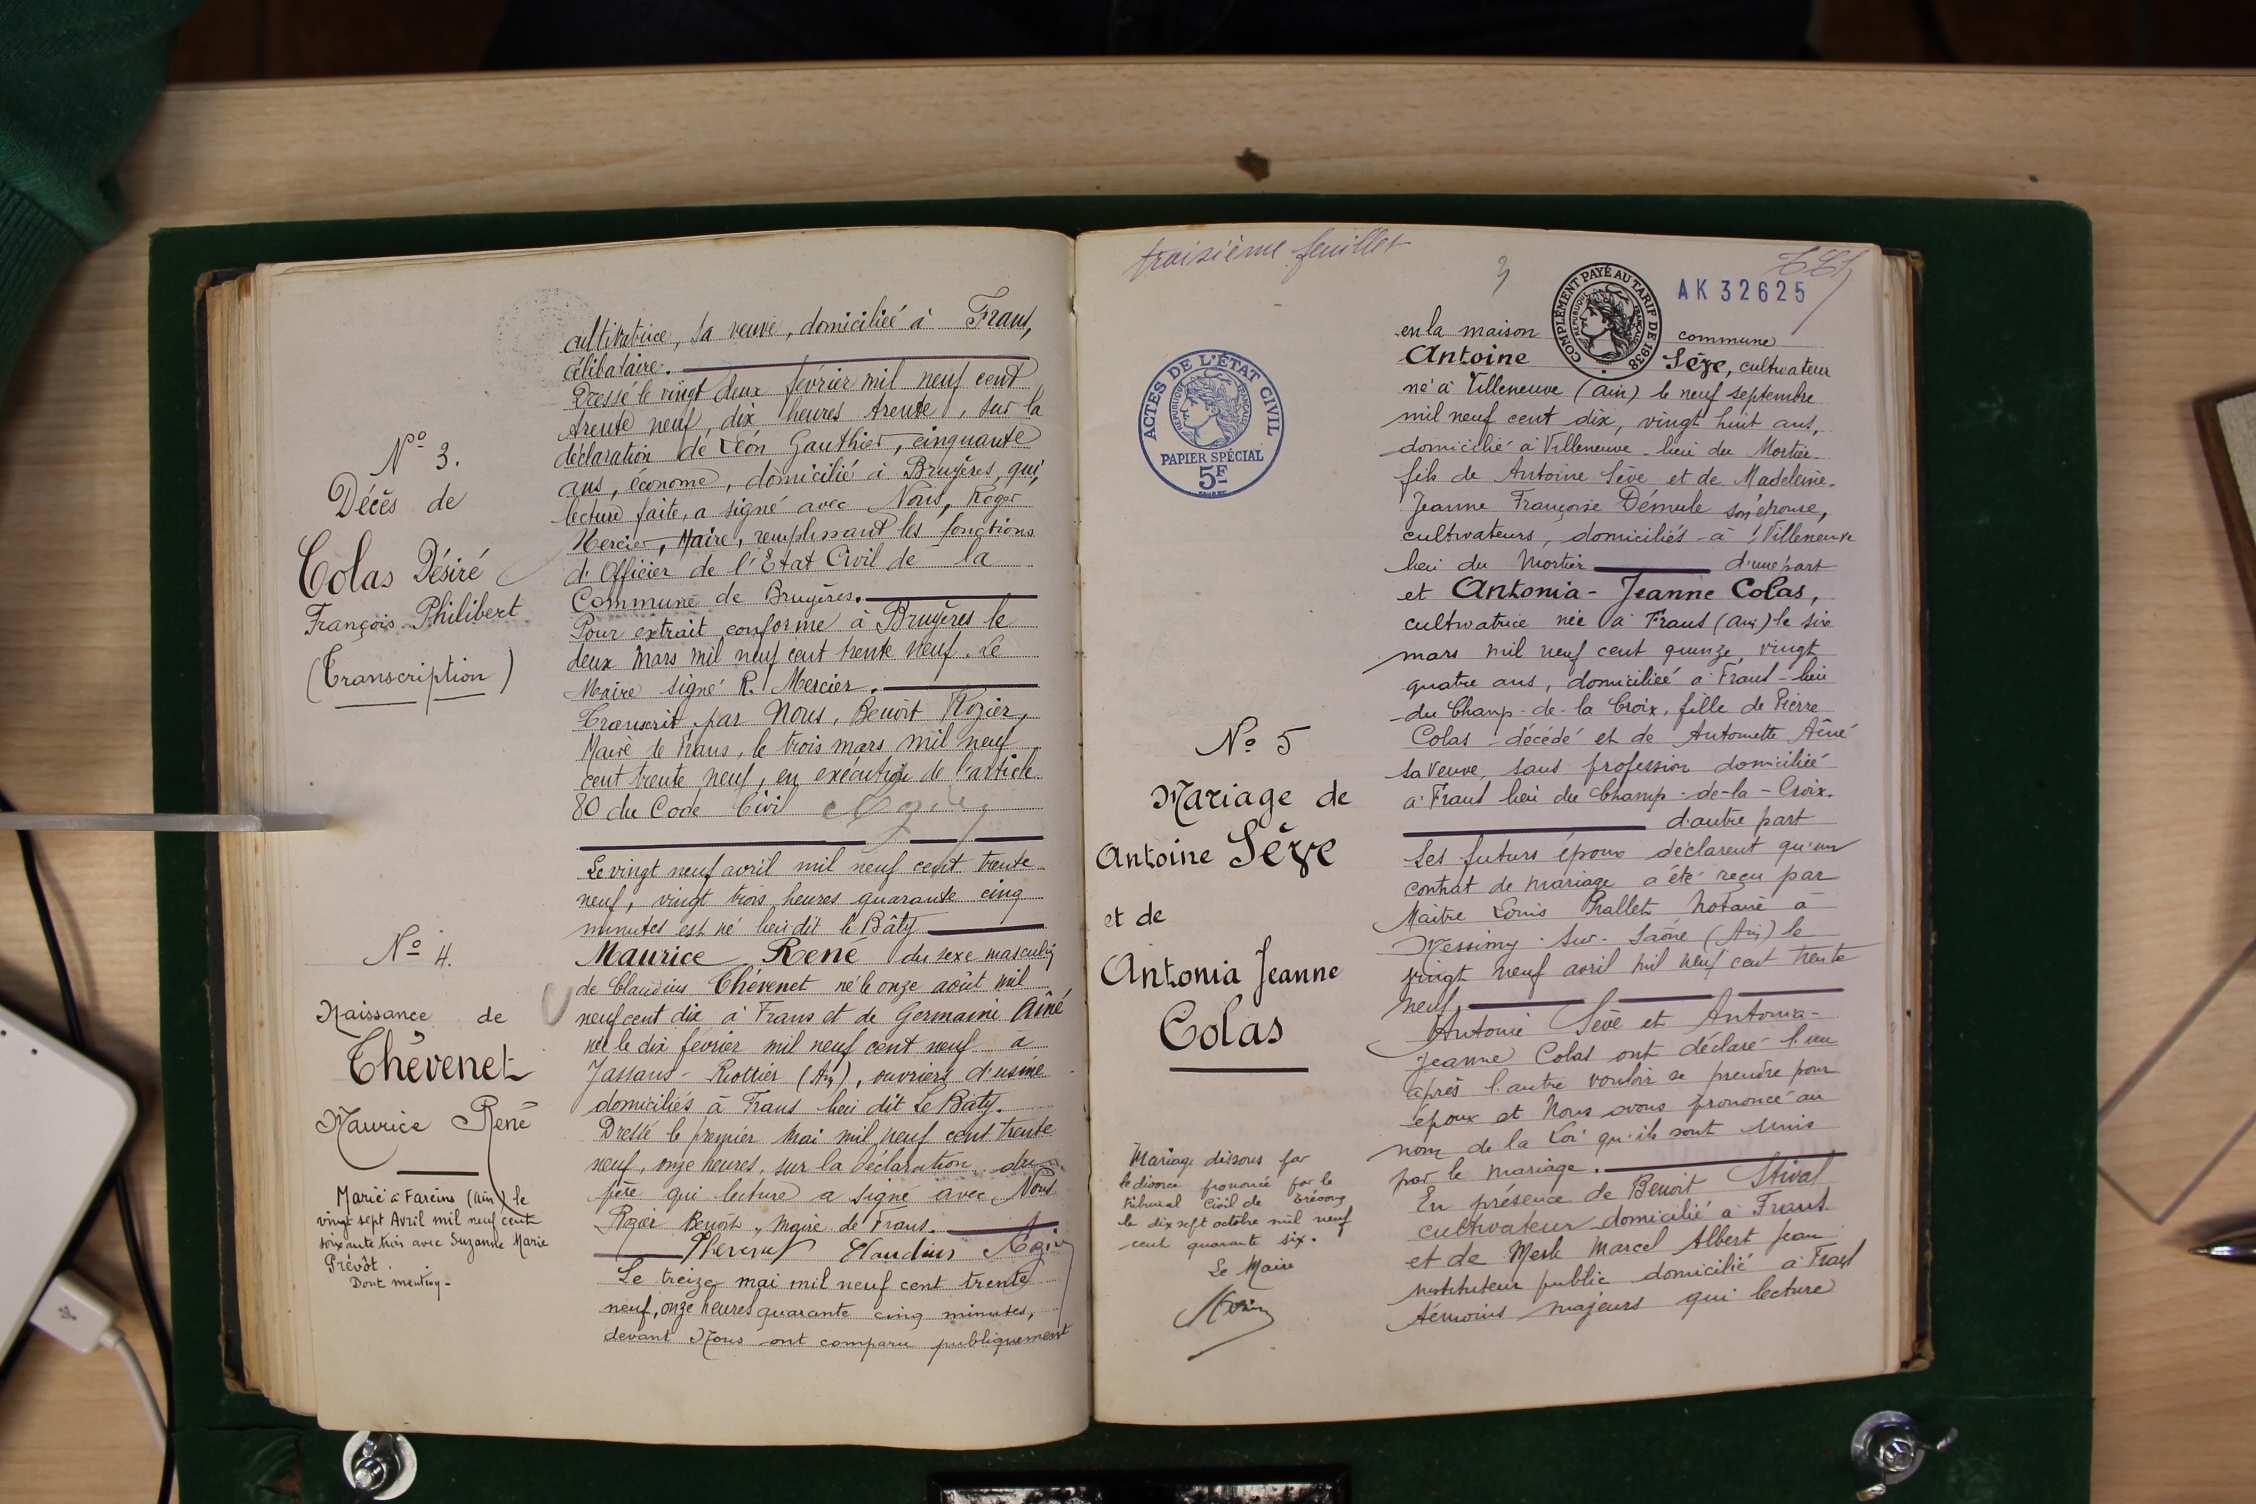 cultivatrice, sa veuve, domiciliée à Frans,
célibataire.
Dressé le vingt deux février mil neuf cent
trente neuf, dix heures trente, sur la
déclaration de Léon Gauthier, cinquante
ans, économe, domicilié à Bruyères, qui,
lecture faite, a signé avec Nous, Roger
Mercier, Maire, remplissant les fonctions
d'Officier de l'Etat Civil de la
Commune de Bruyères.
Pour extrait conforme à Bruyères le
deux Mars mil neuf cent trente neuf. Le
Maire signé R. Mercier.
Transcrit par Nous, Benoit Rozier,
Maire de Frans, le trois mars mil neuf
cent trente neuf, en exécution de l'article
80 du Code Civil
No 3.
Décès de
Colas Désiré
François Philibert
(Transcription)
Le vingt neuf avril mil neuf cent trente
neuf, vingt trois heures quarante cinq
minutes est né lieu dit le Bâty
Maurice René du sexe masculin
de Claudius Thévenet né le onze août mil
neuf cent dix à Frans et de Germaine Aîné
née le dix février mil neuf cent neuf à
Jassans-Riottier (Ain), ouvriers d'usine
domiciliés à Frans lieu dit Le Bâty.
Dressé le premier Mai mil neuf cent trente
neuf, onze heures, sur la déclaration du
père qui lecture a signé avec Nous
Rozier Benoit, Maire de Frans.
Thevenet Claudius Rozier
No 4.
Naissance de
Thévenet
Maurice René
Marié à Fareins (Ain) le
vingt sept Avril mil neuf cent
soixante trois avec Suzanne Marie
Prévôt.
Dont mention-
Le treize mai mil neuf cent trente
neuf, onze heures quarante cinq minutes,
devant Nous ont comparu publiquement
troisième feuillet
3
AK 32625
COMPLÉMENT PAYÉ AU TARIF DE 1938
RÉPUBLIQUE FRANÇAISE
ACTES DE L'ÉTAT CIVIL
RÉPUBLIQUE FRANÇAISE
PAPIER SPÉCIAL
5F
en la maison commune
Antoine Sève, cultivateur
né à Villeneuve (Ain) le neuf septembre
mil neuf cent dix, vingt huit ans,
domicilié à Villeneuve - lieu du Mortier
fils de Antoine Sève et de Madeleine-
Jeanne Françoise Démule son épouse,
cultivateurs, domiciliés à Villeneuve
lieu du Mortier d'une part
et Antonia-Jeanne Colas,
cultivatrice née à Frans (Ain) le six
mars mil neuf cent quinze, vingt
quatre ans, domiciliée à Frans - lieu
du Champ-de-la Croix, fille de Pierre
Colas - décédé et de Antoinette Aîné
sa veuve, sans profession domiciliée
à Frans lieu du Champ-de-la-Croix.
d'autre part
Les futurs époux déclarent qu'un
contrat de mariage a été reçu par
Maître Louis Rallet Notaire à
Messimy-sur-Saône (Ain) le
vingt neuf avril mil neuf cent trente
neuf.
Antoine Sève et Antonia-
Jeanne Colas ont déclaré l'un
après l'autre vouloir se prendre pour
époux et Nous avons prononcé au
nom de la Loi qu'ils sont unis
par le mariage.
En présence de Benoit Stival
cultivateur domicilié à Frans
et de Merle Marcel Albert Jean
instituteur public domicilié à Frans
témoins majeurs qui lecture
No 5
Mariage de
Antoine Sève
et de
Antonia Jeanne
Colas
Mariage dissous par
le divorce prononcé par le
tribunal Civil de Trévoux
le dix sept octobre mil neuf
cent quarante six.
Le Maire